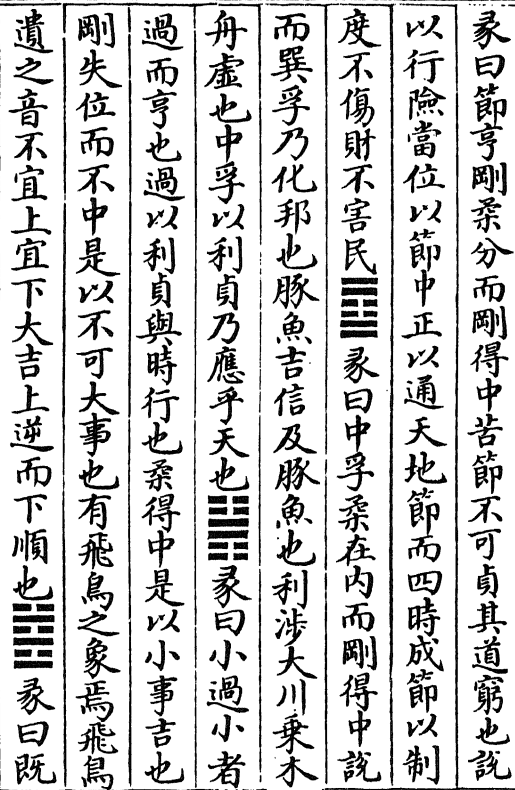 彖曰節亨剛柔分而剛得中苦節不可貞其道窮也說
以行險當位以節中正以通天地節而四時成節以制
度不傷財不害民䷼彖曰中孚柔在内而剛得中說
而巽孚乃化邦也豚魚吉信及豚魚也利涉大川乗木
舟虛也中孚以利貞乃應乎天也䷽彖曰小過小者
過而亨也過以利貞與時行也柔得中是以小事吉也
剛失位而不中是以不可大事也有飛鳥之象焉飛鳥
遺之音不宜上宜下大吉上逆而下順也䷾彖曰既